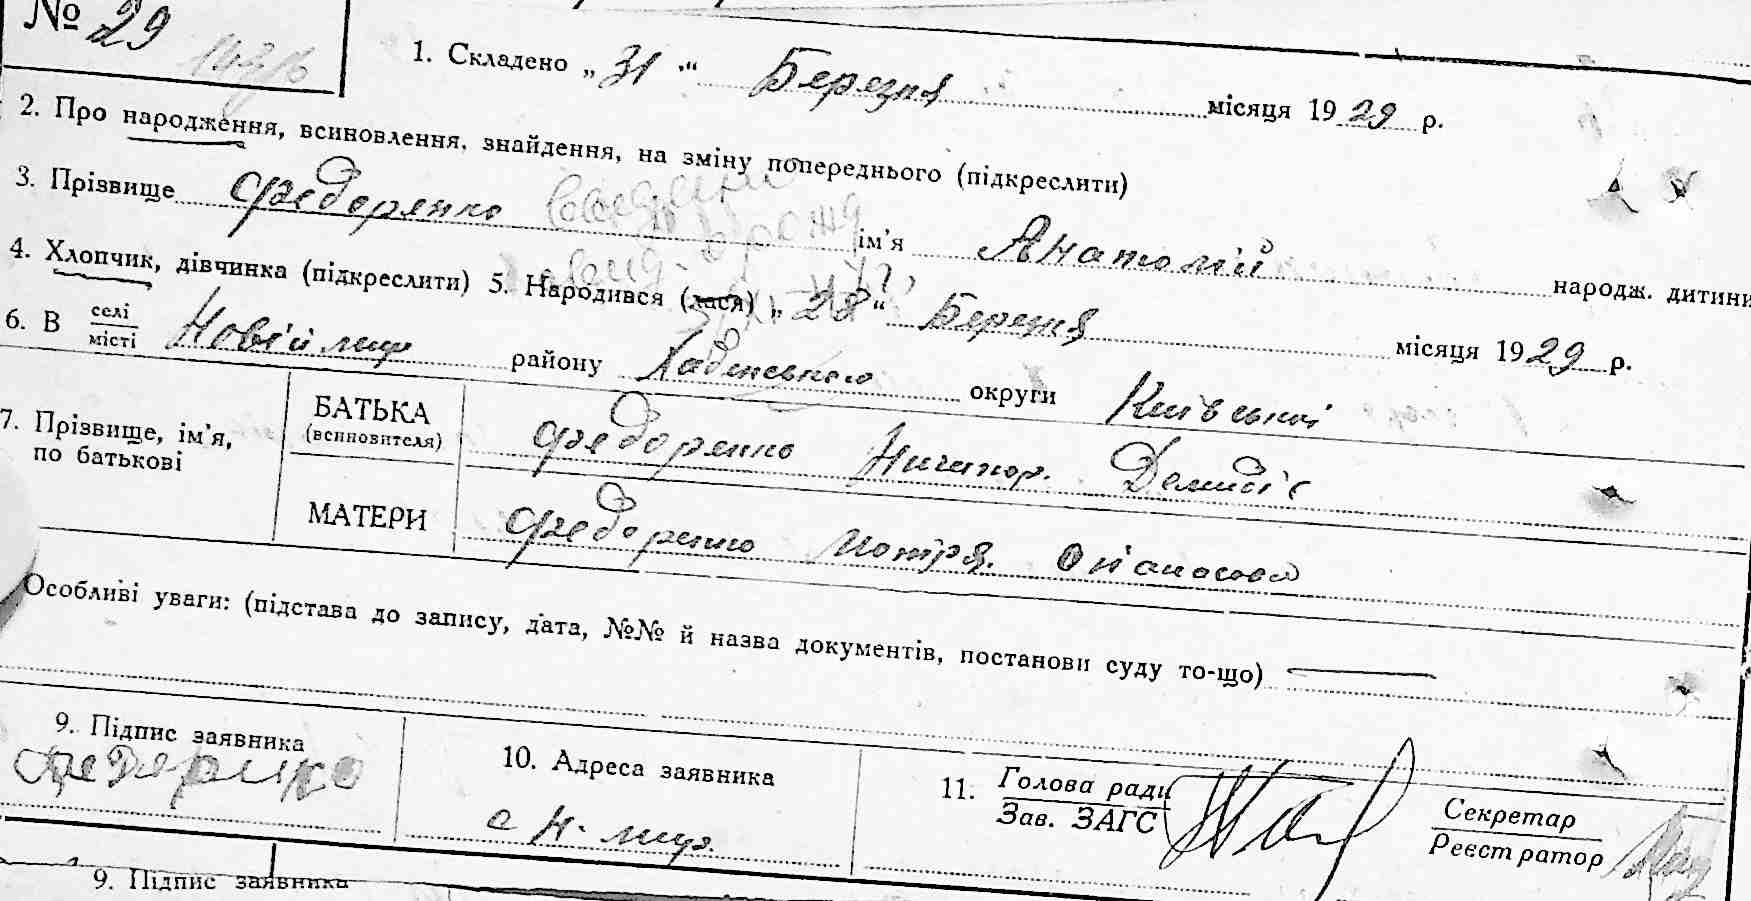 № 29
1. Складено „31“ Березня місяця 1929 р.
2. Про народження, всиновлення, знайдення, на зміну попереднього (підкреслити)
3. Прізвище Федоренко ім'я Анатолій народж. дитини
4. Хлопчик, дівчинка (підкреслити) 5. Народився (лася) „28“ Березня місяця 1929 р.
6. В селі місті Новій мир району Хабенського округи Київської
7. Прізвище, ім'я, по батькові
БАТЬКА (всиновителя) Федоренко Ничипор. Демидів
МАТЕРИ Федоренко Мотря. Опанасова
Особливі уваги: (підстава до запису, дата, №№ й назва документів, постанови суду то-що)
9. Підпис заявника
Федоренко
10. Адреса заявника
с Н. мир.
11. Голова ради
Зав. ЗАГС
Секретар
Реєстратор
9. Підпис заявника